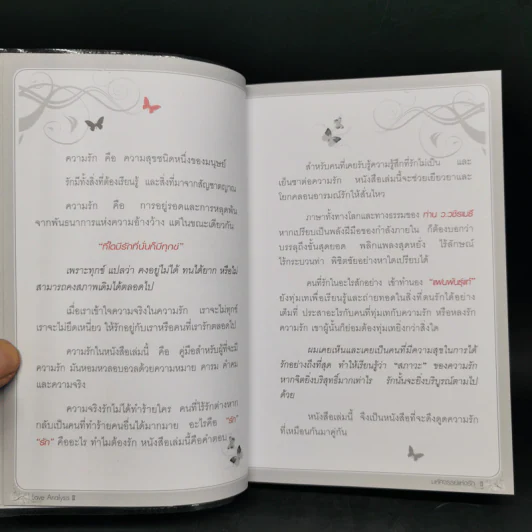 ความรัก คือ ความสุขชนิดหนึ่งของมนุษย์
รักมีทั้งสิ่งที่ต้องเรียนรู้ และสิ่งที่มาจากสัญชาตญาณ
ความรัก คือ การอยู่รอดและการหลุดพ้น
จากพันธนาการแห่งความอ้างว้าง แต่ในขณะเดียวกัน
“ที่ใดมีรักที่นั่นก็มีทุกข์”
เพราะทุกข์ แปลว่า คงอยู่ไม่ได้ ทนได้ยาก หรือไม่
สามารถคงสภาพเดิมได้ตลอดไป
เมื่อเราเข้าใจความจริงในความรัก เราจะไม่ทุกข์
เราจะไม่ยึดเหนี่ยว ให้รักอยู่กับเราหรือคนที่เรารักตลอดไป
ความรักในหนังสือเล่มนี้ คือ คู่มือสำหรับผู้ที่จะมี
ความรัก มันหอมหวลอบอวลด้วยความหมาย คารม คำคม
และความจริง
ความจริงรักไม่ได้ทำร้ายใคร คนที่ไร้รักต่างหาก
กลับเป็นคนที่ทำร้ายคนอื่นได้มากมาย อะไรคือ “รัก”
“รัก” คืออะไร ทำไมต้องรัก หนังสือเล่มนี้คือคำตอบ
Love Analysis II
สำหรับคนที่เคยรับรู้ความรู้สึกที่รักไม่เป็น และ
เย็นชาต่อความรัก หนังสือเล่มนี้จะช่วยเยียวยาและ
โยกคลอนอารมณ์รักให้สั่นไหว
ภาษาทั้งทางโลกและทางธรรมของ ท่าน ว.วชิรเมธี
หากเปรียบเป็นพลังฝีมือของกำลังภายใน ก็ต้องบอกว่า
บรรลุถึงขั้นสุดยอด พลิกแพลงสุดหยั่ง ไร้ลักษณ์
ไร้กระบวนท่า พิชิตชัยอย่างหาใดเปรียบได้
คนที่รักในอะไรสักอย่าง เข้าทำนอง “แฟนพันธุ์แท้”
ยังทุ่มเทเพื่อเรียนรู้และถ่ายทอดในสิ่งที่ตนรักได้อย่าง
เต็มที่ ประสาอะไรกับคนที่ทุ่มเทกับความรัก หรือหลงรัก
ความรัก เขาผู้นั้นก็ย่อมต้องทุ่มเทยิ่งกว่าสิ่งใด
ผมเคยเห็นและเคยเป็นคนที่มีความสุขในการได้
รักอย่างถึงที่สุด ทำให้เรียนรู้ว่า “สภาวะ” ของความรัก
หากจิตยิ่งบริสุทธิ์มากเท่าไร รักนั้นจะยิ่งบริบูรณ์ตามไป
ด้วย
หนังสือเล่มนี้ จึงเป็นหนังสือที่จะดึงดูดความรัก
ที่เหมือนกันมาคู่กัน